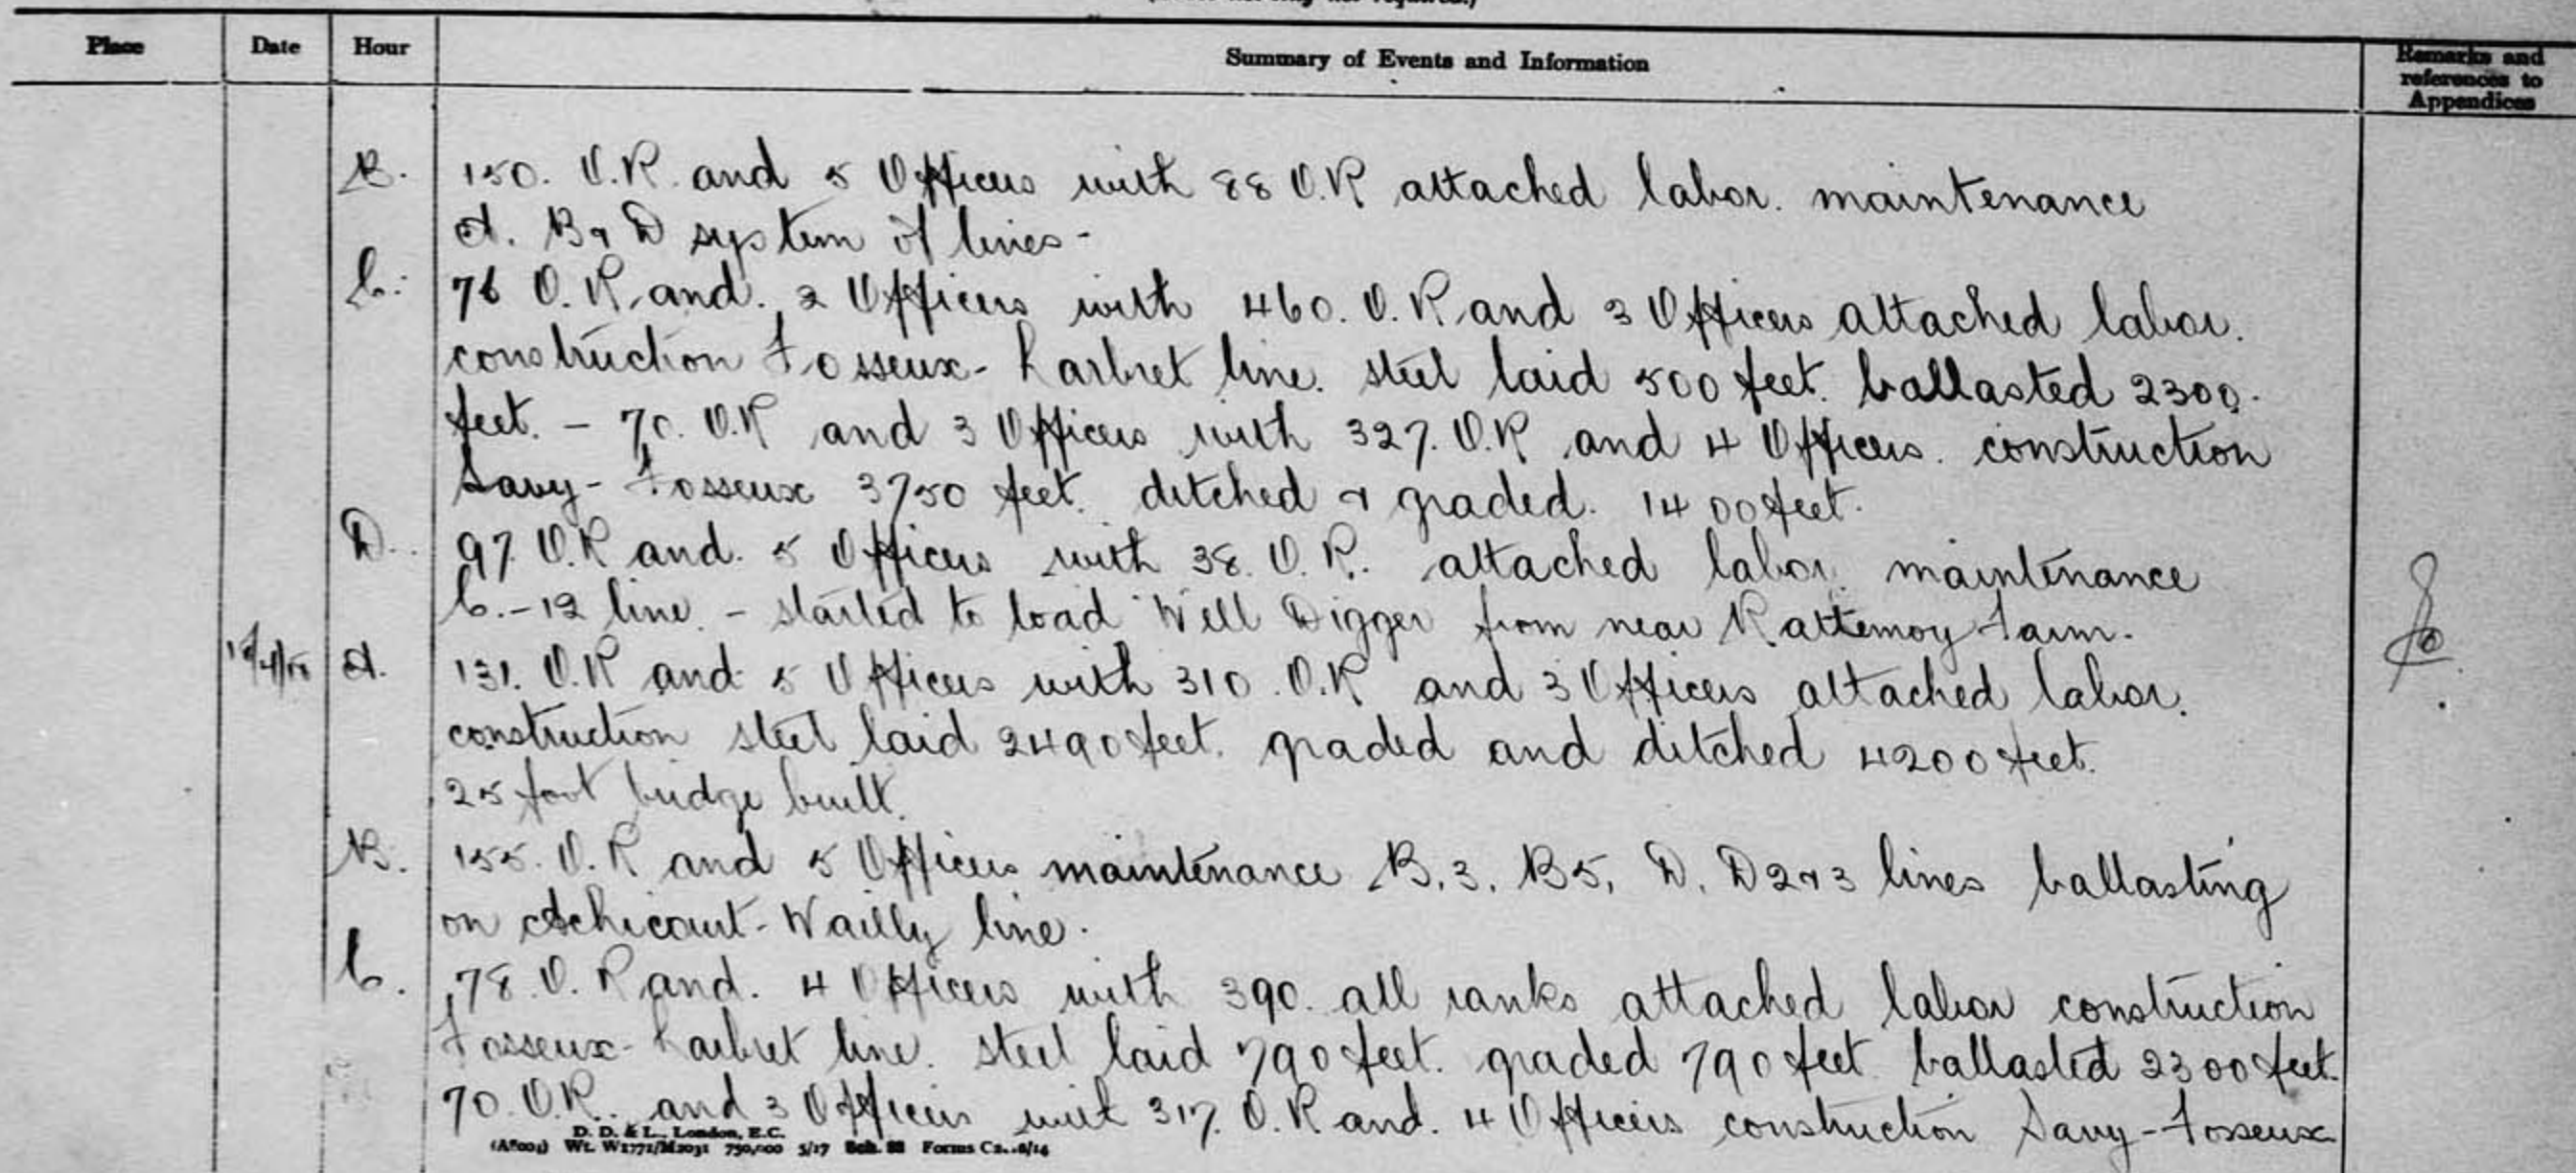 Place Date Hour Summary of Events and Information Remarks and references to Appendices
B. 150. O.R. and 5 Officers with 88 O.R attached labor. maintenance
A. B & D system of lines -
C. 76 O.R. and. 2 Officers with 460. O.R and 3 Officers attached labor.
construction Fosseux - Larbret line. steel laid 500 feet. ballasted 2300.
feet. - 70. O.R and 3 Officers with 327. O.R and 4 Officers. construction
Savy - Fosseux 3750 feet. ditched & graded. 1400 feet.
D. 97. O.R and. 5 Officers with 38. O.R. attached labor. maintenance
C. - 12 line. - started to load Well Digger from near Farm.
A. 131. O.R and 5 Officers with 310. O.R and 3 Officers attached labor.
construction steel laid 2490 feet. graded and ditched 4200 feet.
25 foot bridge built.
B. 155. O.R and 5 Officers maintenance B.3. B5, D. D2 & 3 lines ballasting
on Achicourt - Wailly line.
C. 78. O.R and. 4 Officers with 390. all ranks attached labor construction
Fosseux - Larbret line. steel laid 790 feet. graded 790 feet ballasted 2300 feet.
70. O.R. and 3 Officers wit 317. O.R and. 4 Officers construction Savy - Fosseux
D. D. & L., London, E.C.
Wt. W1771/M2031 750,000 5/17 Forms